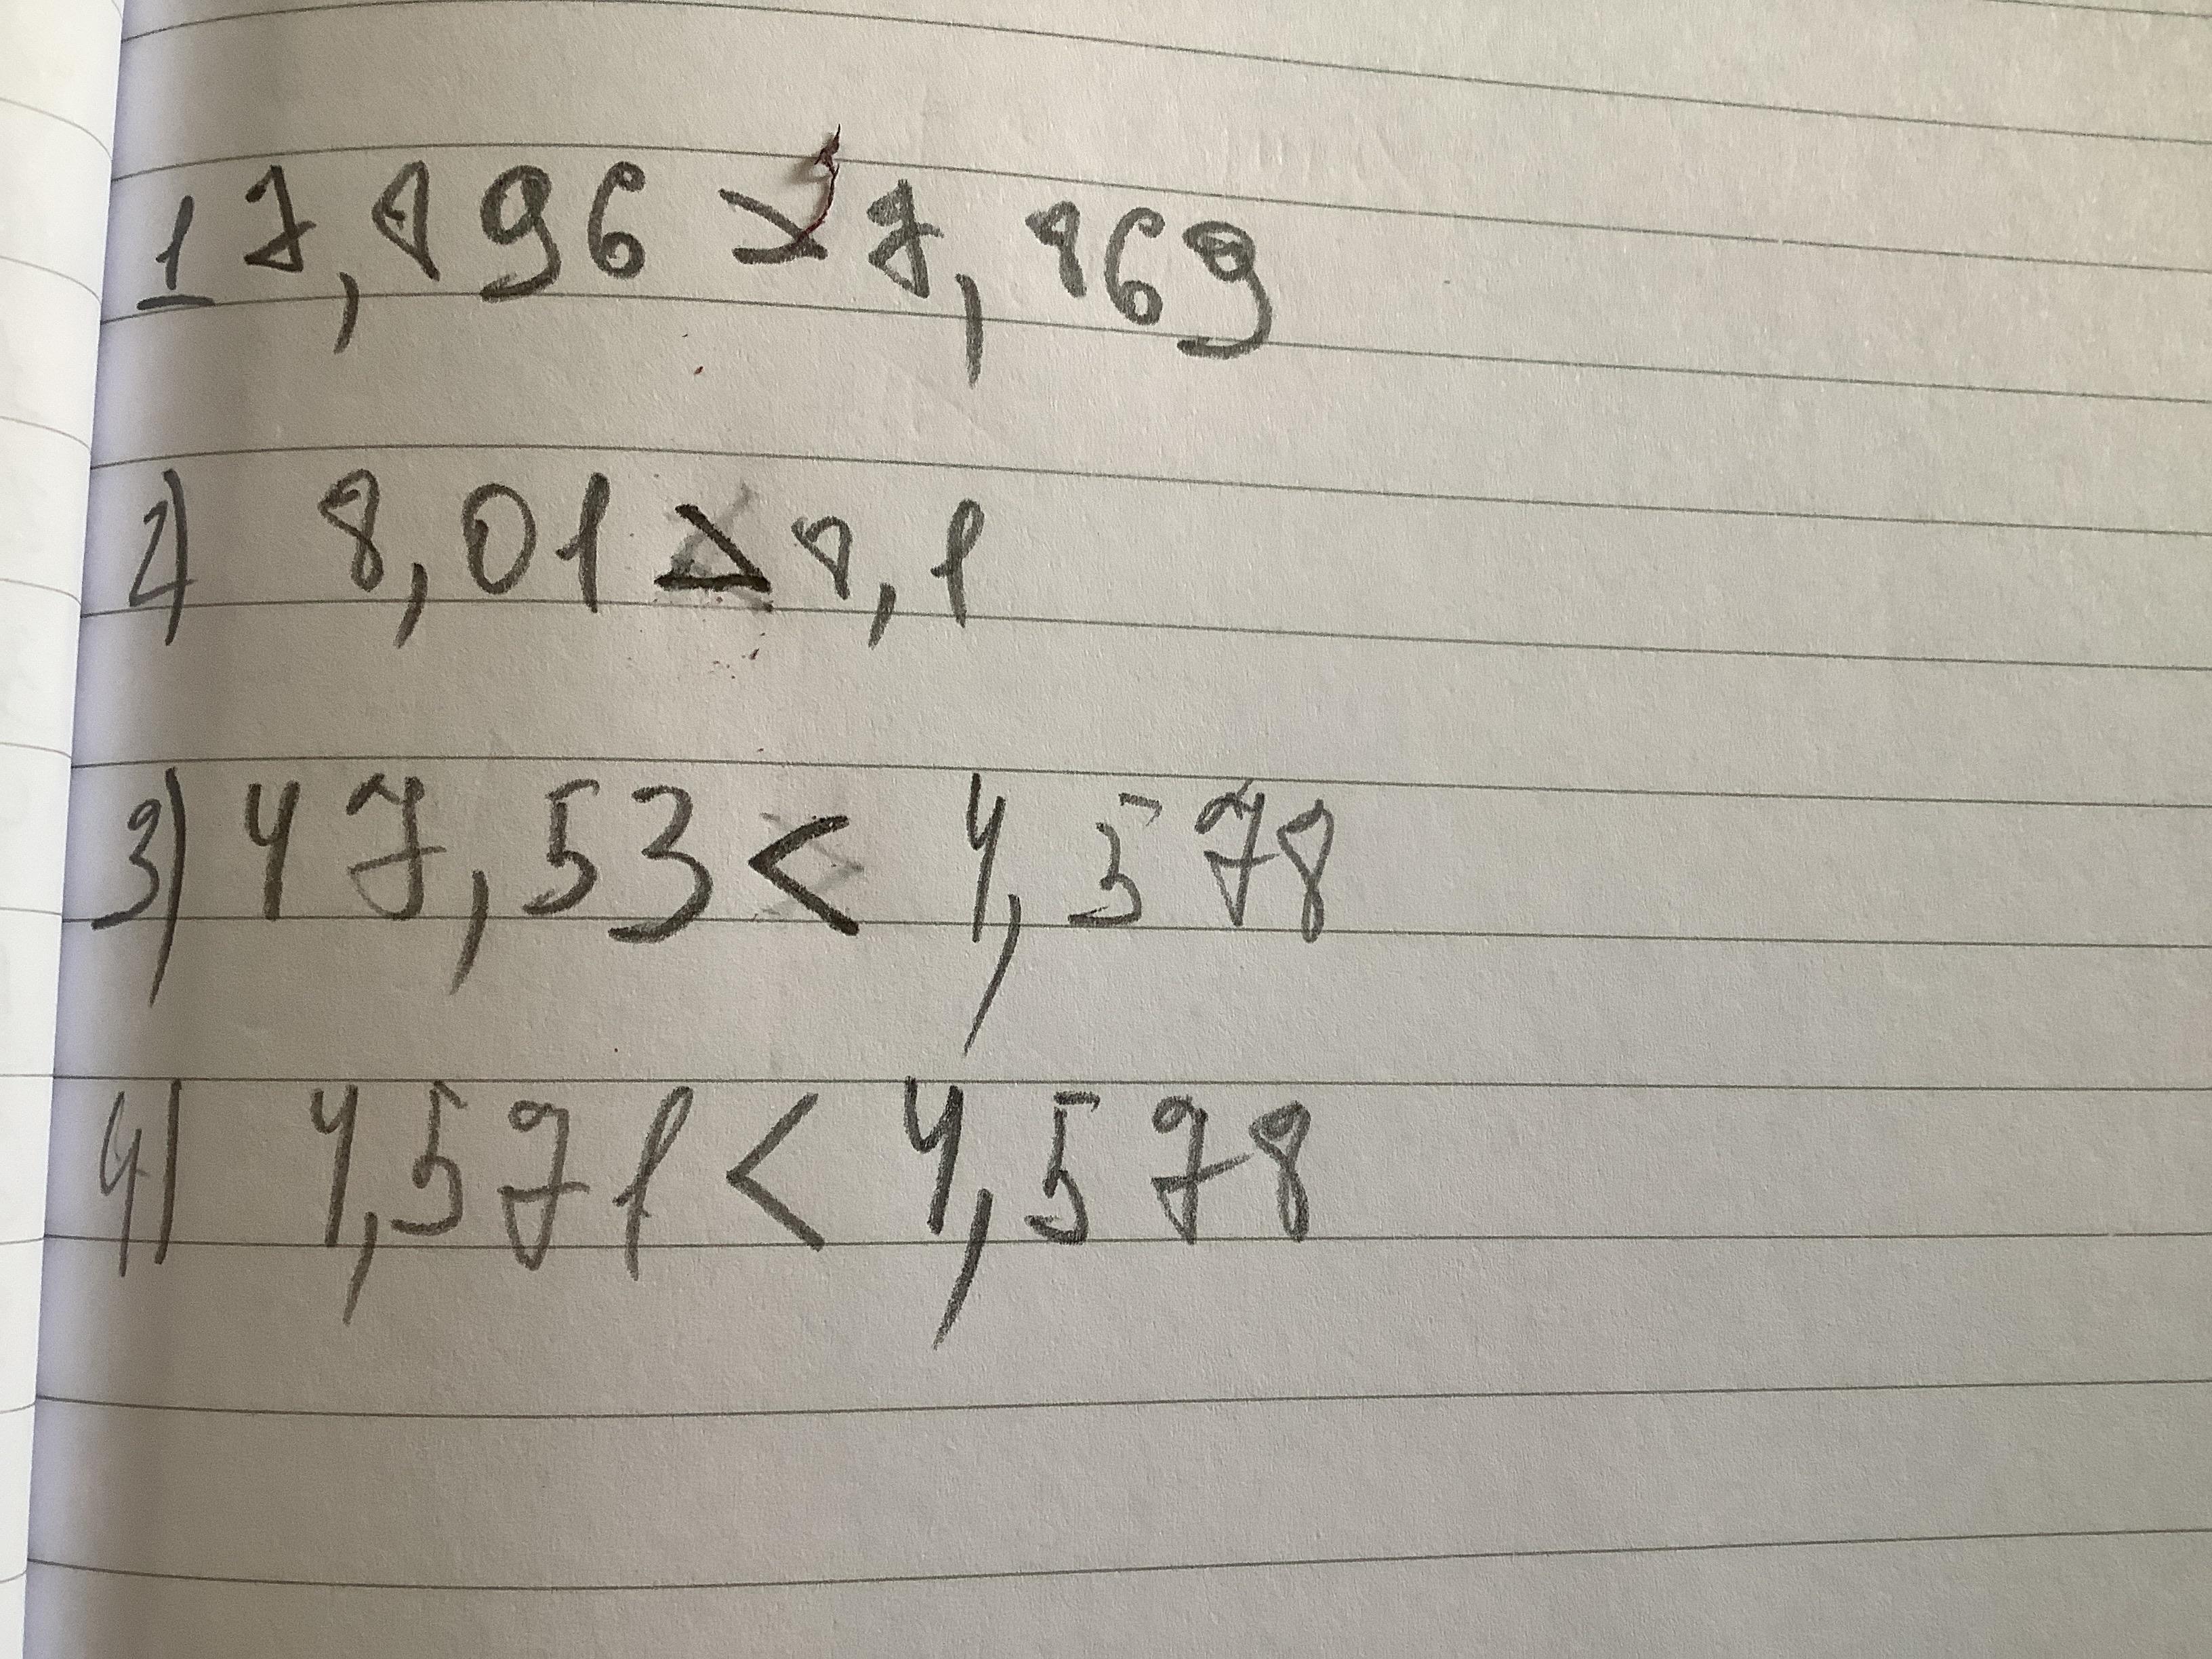 1 7,896 > 7,869
2) 8,01 > 8,1
3) 47,53 < 4,578
4) 4,571 < 4,578